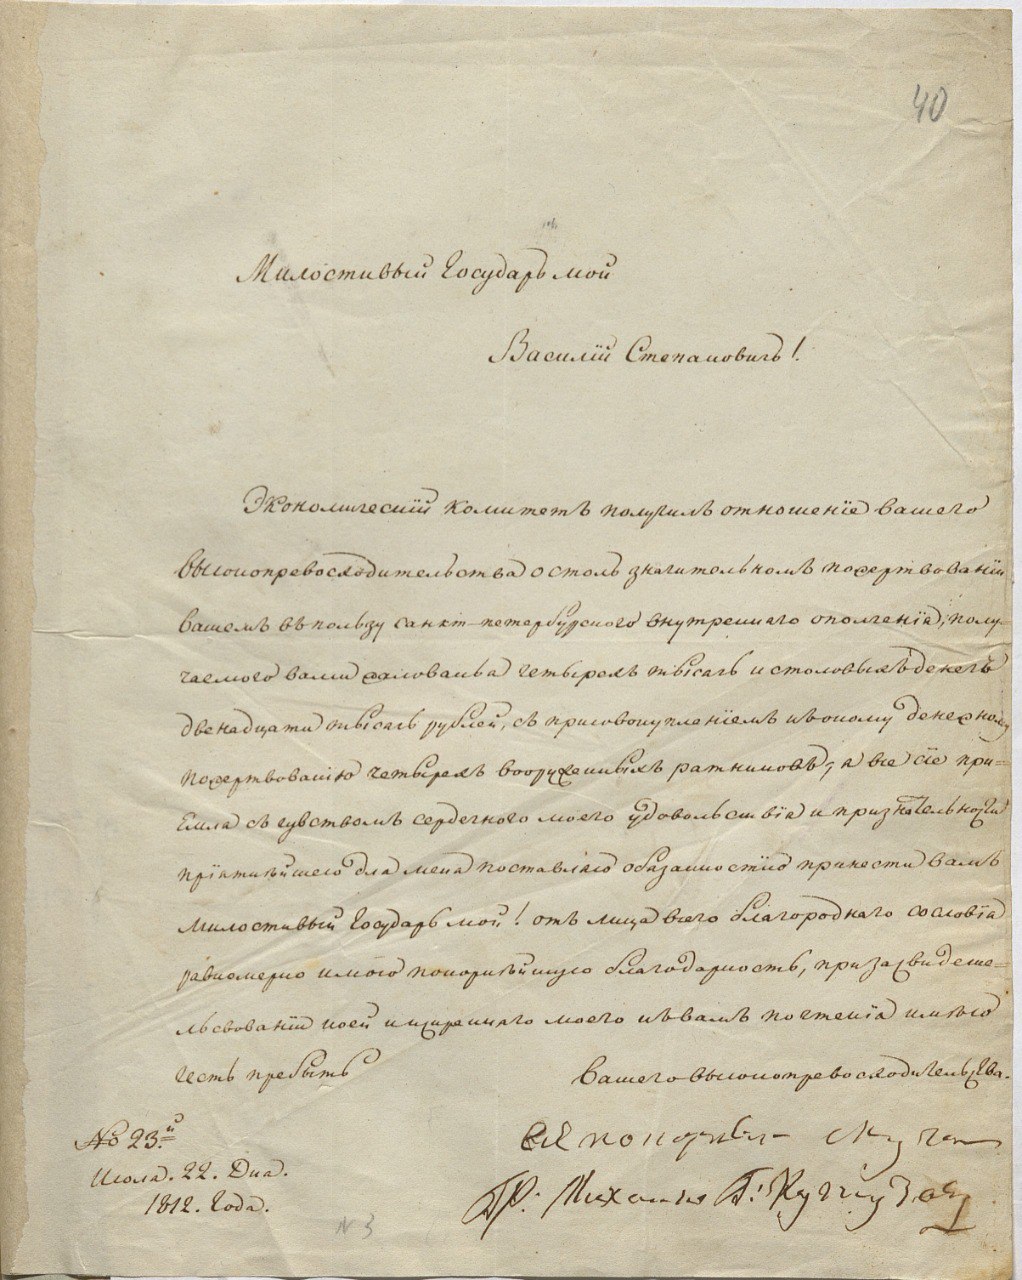 40
Милостивый Государь мой
Василій Степановичь!
Экономическій комитетъ получилъ отношеніе вашего
высокопревосходительства о столь значительномъ пожертвованіи
вашемъ въ пользу санкт-петербурского внутренняго ополченія, полу-
чаемого вами жалованья четырехъ тысячь и столовыхъ денегъ
двенадцати тысячь рублей, съ присовокупленіемъ къ оному денежному
пожертвованію четырехъ вооруженныхъ ратниковъ; я все сіе при-
емля съ чувствомъ сердечного моего удовольствія и признательности
пріятнѣйшею для меня поставляю обязанностію принести вамъ
милостивый Государь мой! отъ лица всего благороднаго сословія
равномерно и мою покорнѣйшую благодарность, при засвидете-
льсвованіи коей и искренняго моего къ вамъ почтенія имѣю
честь пребыть
вашего высокопревосходительства.
покорный слуга
Гр. Михаила Г: Кутузовъ
№ 23.й
Июля. 22. Дня.
1812. Года.
N 3